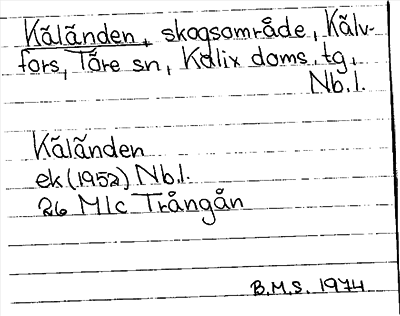 Käländen, skogsområde, Kälv-
fors, Töre sn, Kalix doms. tg.
Nb.l.
Käländen
ek (1952) Nb.l.
26 M1c Trångån
B.M.S. 1974